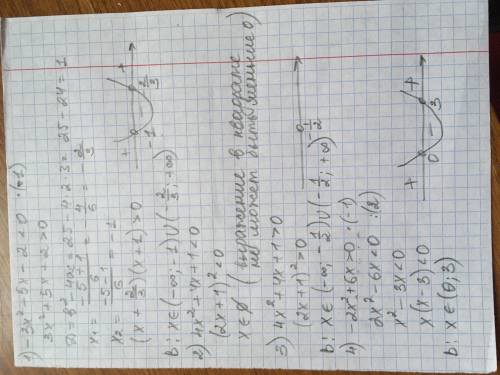 1) -3x² - 5x - 2 < 0 ·(-1)
3x² + 5x + 2 > 0
D = b² - 4ac = 25 - 4·2·3 = 25 - 24 = 1
x₁ = (-5+1)/6 = -4/6 = -2/3
x₂ = (-5-1)/6 = -1
(x + 2/3)(x+1) > 0
+ - + -1 -2/3
В: x∈(-∞; -1)∪(-2/3; +∞)
2) 4x² + 4x + 1 < 0
(2x+1)² < 0
x∈∅ (выражение в квадрате
не может быть меньше 0)
3) 4x² + 4x + 1 > 0
(2x+1)² > 0
-1/2
В: x∈(-∞; -1/2)∪(-1/2; +∞)
4) -2x² + 6x > 0 ·(-1)
2x² - 6x < 0 :(2)
x² - 3x < 0
x(x-3) < 0
+ - + 0 3
В: x∈(0; 3)